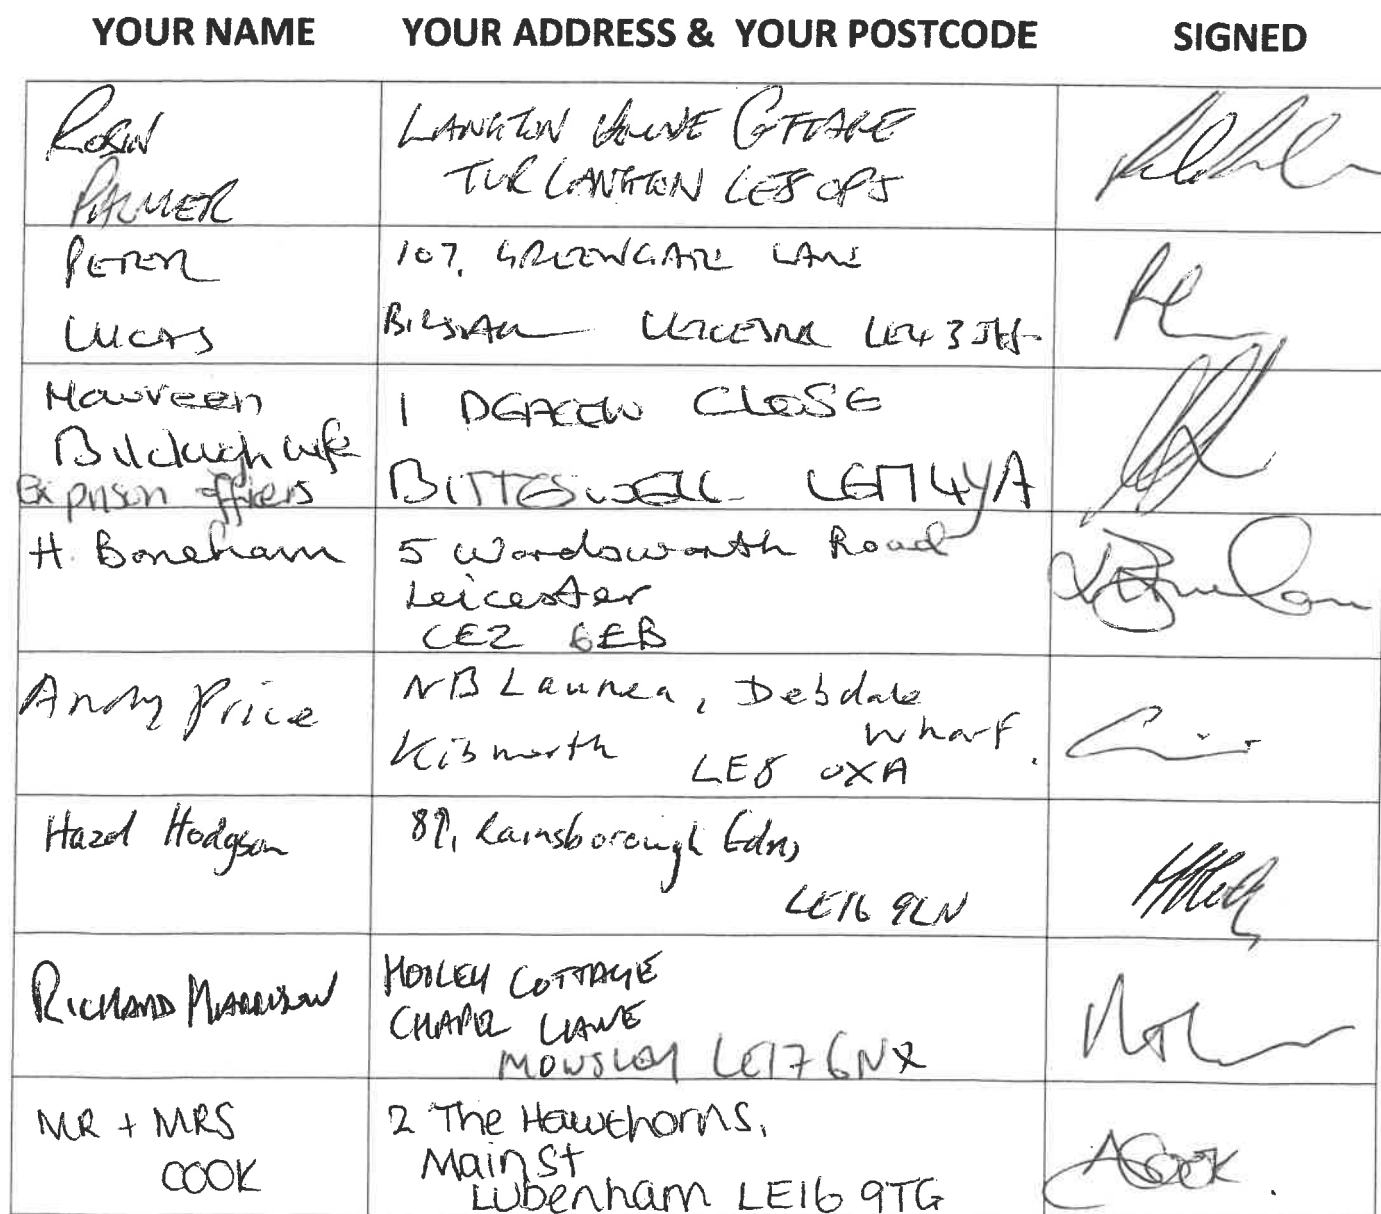 YOUR NAME YOUR ADDRESS & YOUR POSTCODE SIGNED
ROBIN
PALMER
LANGTON COTTAGE
TUR LANGTON LE8 0PJ
PETER
LUCAS
107, GREENGATE LANE
BIRSTALL LEICESTER LE4 3JH
Maureen
wife
Ex prison officers
1 DEACON CLOSE
BITTESWELL LE17 4YA
H. Boneham
5 Wordsworth Road
Leicester
LE2 6EB
Andy Price
NB Launea, Debdale
Wharf.
Kibworth LE8 0XA
Hazel Hodgson
89, Rainsborough Gdns,
LE16 9LN
RICHARD MARRISON
COTTAGE
CHAPEL LANE
MOWSLEY LE17 6NX
MR + MRS
COOK
2 The Hawthorns,
Main St
Lubenham LE16 9TG
ACOOK